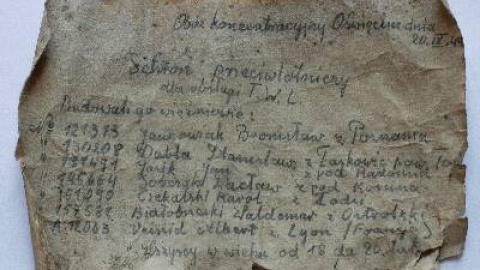 Obóz koncentracyjny Oświęcim dnia
20.IX.44
Schron przeciwlotniczy
dla obsługi T.W.L
Budowali go więźniowie:
Nr 121313 Jankowiak Bronisław z Poznania
" 130208 Dubla Stanisław z Łaskowic pow.
" 131491 Jasik Jan z pod Radomia
" 145664 Sobczak Wacław z pod Konina
" 151090 Czekalski Karol z Łodzi
" 157582 Białobrzeski Waldemar z Ostrołęki
" A12063 Veisid Albert z Lyon (Francja)
Wszyscy w wieku od 18 do 20 lat